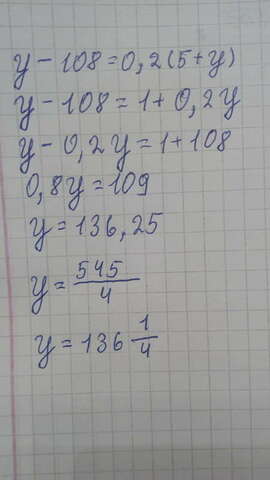 y - 108 = 0,2(5+y)
y - 108 = 1 + 0,2y
y - 0,2y = 1 + 108
0,8y = 109
y = 136,25
y = 545/4
y = 136 1/4